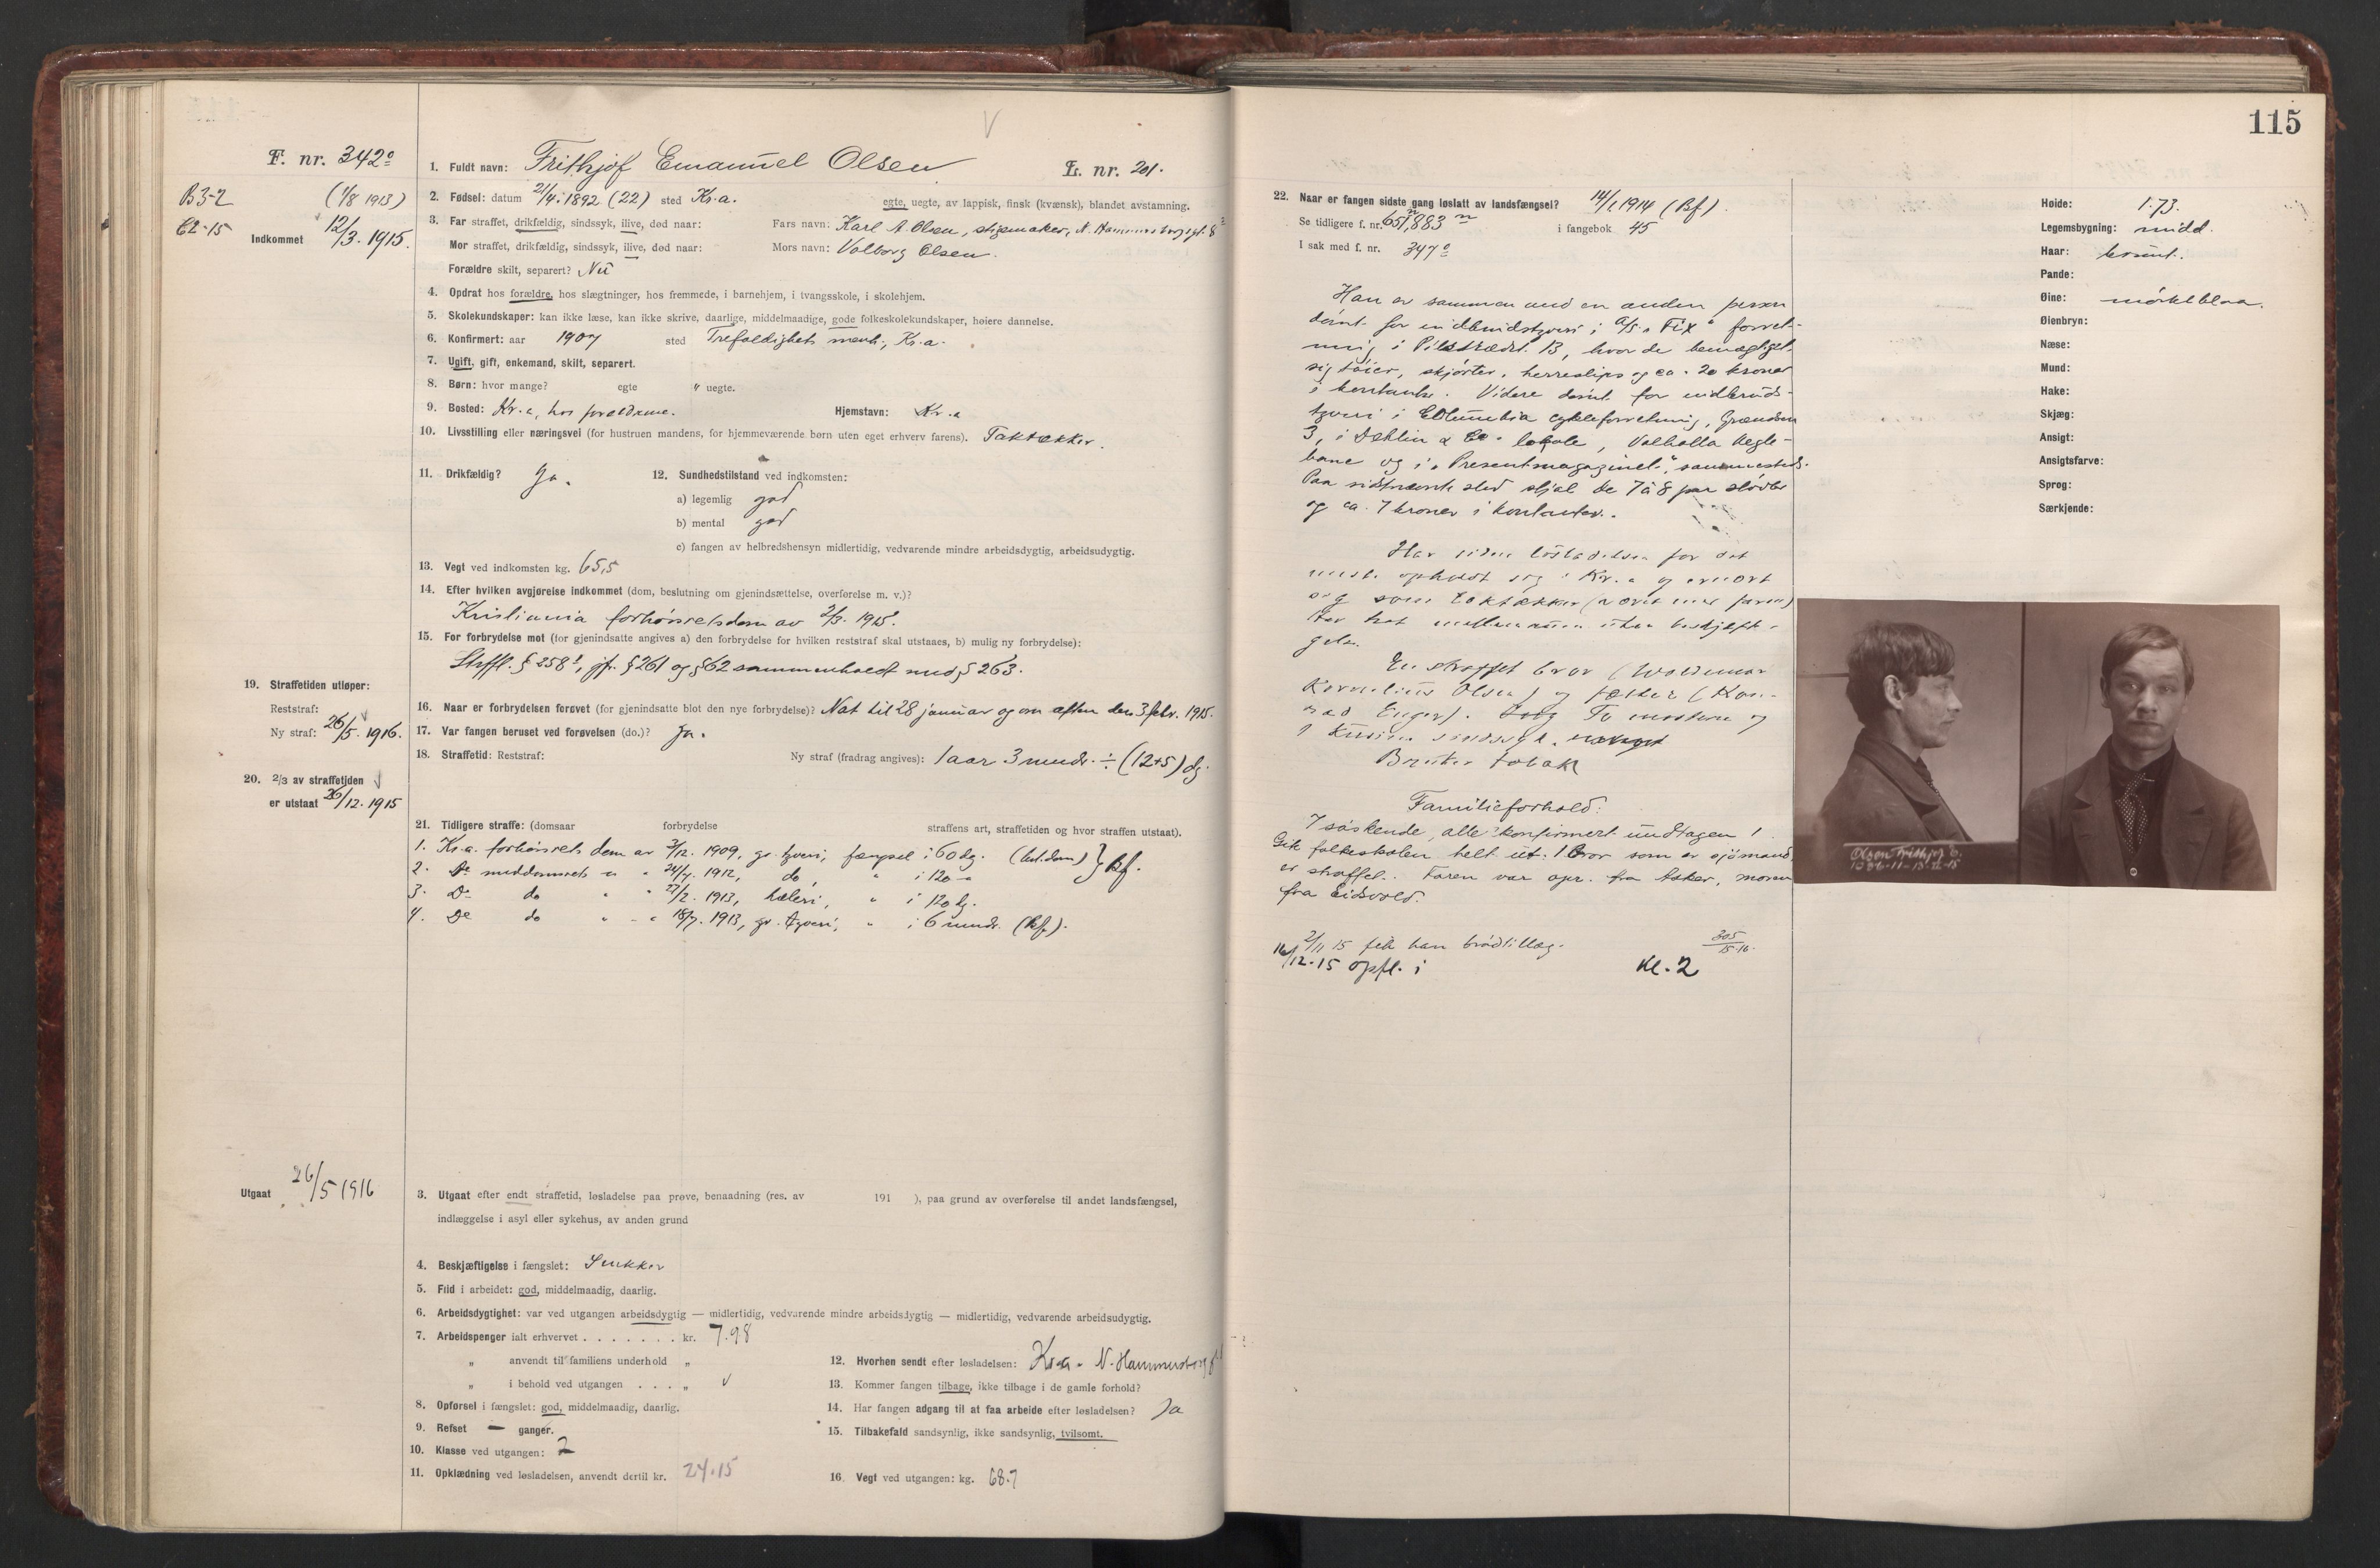 115
F. nr. 342º
B 3-2 (1/8 1913)
Indkommet 12/3. 1915.
1. Fuldt navn: Frithjof Emanuel Olsen L. nr. 201.
2. Fødsel: datum 21/4. 1892 (22) sted Kr.a. egte, uegte, av lappisk, finsk (kvænsk), blandet avstamning.
3. Far straffet, drikfældig, sindssyk, ilive, død naar: Fars navn: Karl A. Olsen, stigemaker, N. Hammersborggt. 8
Mor straffet, drikfældig, sindssyk, ilive, død naar: Mors navn: Valborg Olsen.
Forældre skilt, separert? Nei
4. Opdrat hos forældre, hos slægtninger, hos fremmede, i barnehjem, i tvangsskole, i skolehjem.
5. Skolekundskaper: kan ikke læse, kan ikke skrive, daarlige, middelmaadige, gode folkeskolekundskaper, høiere dannelse.
6. Konfirmert: aar 1907 sted Trefoldighets menh., Kr.a.
7. Ugift, gift, enkemand, skilt, separert.
8. Børn: hvor mange? egte " uegte.
9. Bosted: Kr.a, hos forældrene. Hjemstavn: Kr.a
10. Livsstilling eller næringsvei (for hustruen mandens, for hjemmeværende børn uten eget erhverv farens). Taktækker.
11. Drikfældig? Ja. 12. Sundhedstilstand ved indkomsten:
a) legemlig god
b) mental god
c) fangen av helbredshensyn midlertidig, vedvarende mindre arbeidsdygtig, arbeidsudygtig.
13. Vegt ved indkomsten kg. 65,5
14. Efter hvilken avgjørelse indkommet (dom, beslutning om gjenindsættelse, overførelse m. v.)?
Kristiania forhørsretsdom av 2/3. 1915.
15. For forbrydelse mot (for gjenindsatte angives a) den forbrydelse for hvilken reststraf skal utstaaes, b) mulig ny forbrydelse):
Strfl. § 258², jfr. § 261 og § 62 sammenholdt med § 263.
16. Naar er forbrydelsen forøvet (for gjenindsatte blot den nye forbrydelse)? Nat til 28 januar og om aften den 3 febr. 1915.
17. Var fangen beruset ved forøvelsen (do.)? Ja.
18. Straffetid: Reststraf: Ny straf (fradrag angives): 1 aar 3 mndr. ÷ (12+5) dg.
19. Straffetiden utløper:
Reststraf:
Ny straf: 26/5. 1916.
20. 2/3 av straffetiden
er utstaat 26/12. 1915
21. Tidligere straffe: (domsaar forbrydelse straffens art, straffetiden og hvor straffen utstaat).
1. Kr.a. forhørsrets dom av 2/12. 1909, gr. tyveri, fængsel i 60 dg. (bet. dom) } Bf.
2. Do meddomsrets " " 24/7. 1912, do " i 120 "
3. Do do " " 27/2. 1913, hæleri, " i 120 dg.
4. Do do " " 18/7. 1913, gr. tyveri, " i 6 mndr. (Bf).
Utgaat 26/5 1916
3. Utgaat efter endt straffetid, løsladelse paa prøve, benaadning (res. av 191 ), paa grund av overførelse til andet landsfængsel,
indlæggelse i asyl eller sykehus, av anden grund
4. Beskjæftigelse i fængslet: Snekker
5. Flid i arbeidet: god, middelmaadig, daarlig.
6. Arbeidsdygtighet: var ved utgangen arbeidsdygtig — midlertidig, vedvarende mindre arbeidsdygtig — midlertidig, vedvarende arbeidsudygtig.
7. Arbeidspenger ialt erhvervet . . . . . . . kr. 7.98
" anvendt til familiens underhold "
" i behold ved utgangen . . . "
8. Opførsel i fængslet: god, middelmaadig, daarlig.
9. Refset — ganger.
10. Klasse ved utgangen: 2
11. Opklædning ved løsladelsen, anvendt dertil kr. 24.15
12. Hvorhen sendt efter løsladelsen: Kr.a. N. Hammersborg
13. Kommer fangen tilbage, ikke tilbage i de gamle forhold?
14. Har fangen adgang til at faa arbeide efter løsladelsen? Ja
15. Tilbakefald sandsynlig, ikke sandsynlig, tvilsomt.
16. Vegt ved utgangen: kg. 68.7
22. Naar er fangen sidste gang løslatt av landsfængsel? 14/1 1914 (Bf).
Se tidligere f. nr. 651, 883 i fangebok 45
I sak med f. nr. 347º
Han er sammen med en anden person
dømt for indbrudstyveri i A/S "Fix" forret-
ning i Pilestrædet 13, hvor de bemægtiget
sig tøier, skjorter, herreslips og ca. 20 kroner
i kontanter. Videre dømt for indbruds-
tyveri i Columbia cykleforretning, Grændsen
3, i Dehlin & Co.s lokale, Valhalla kegle-
bane og i "Presentmagazinet", sammesteds.
Paa sidstnævnte sted stjal de 7 à 8 par støvler
og ca. 7 kroner i kontanter.
Har siden løsladelsen for det
meste opholdt sig i Kr.a og ernært
sig som taktækker (været med faren)
Har hat mellemrum uten beskjæfti-
gelse.
En straffet bror (Waldemar
Kornelius Olsen) og fætter (Kon-
rad Enger). To mostre og
1 kusine sindssyk.
Bruker tobak
Familieforhold:
7 søskende, alle konfirmert undtagen 1.
Gik folkeskolen helt ut. 1 bror som er sjømand,
er straffet. Faren var opr. fra Asker, moren
fra Eidsvold.
2/11 15 fik han brødtillæg. 305/15-16.
16/12.15 opfl. i Kl. 2
Høide: 1.73.
Legemsbygning: midd.
Haar: brunt.
Pande:
Øine: mørkeblaa.
Øienbryn:
Næse:
Mund:
Hake:
Skjæg:
Ansigt:
Ansigtsfarve:
Sprog:
Særkjende:
Olsen Frithjof E.